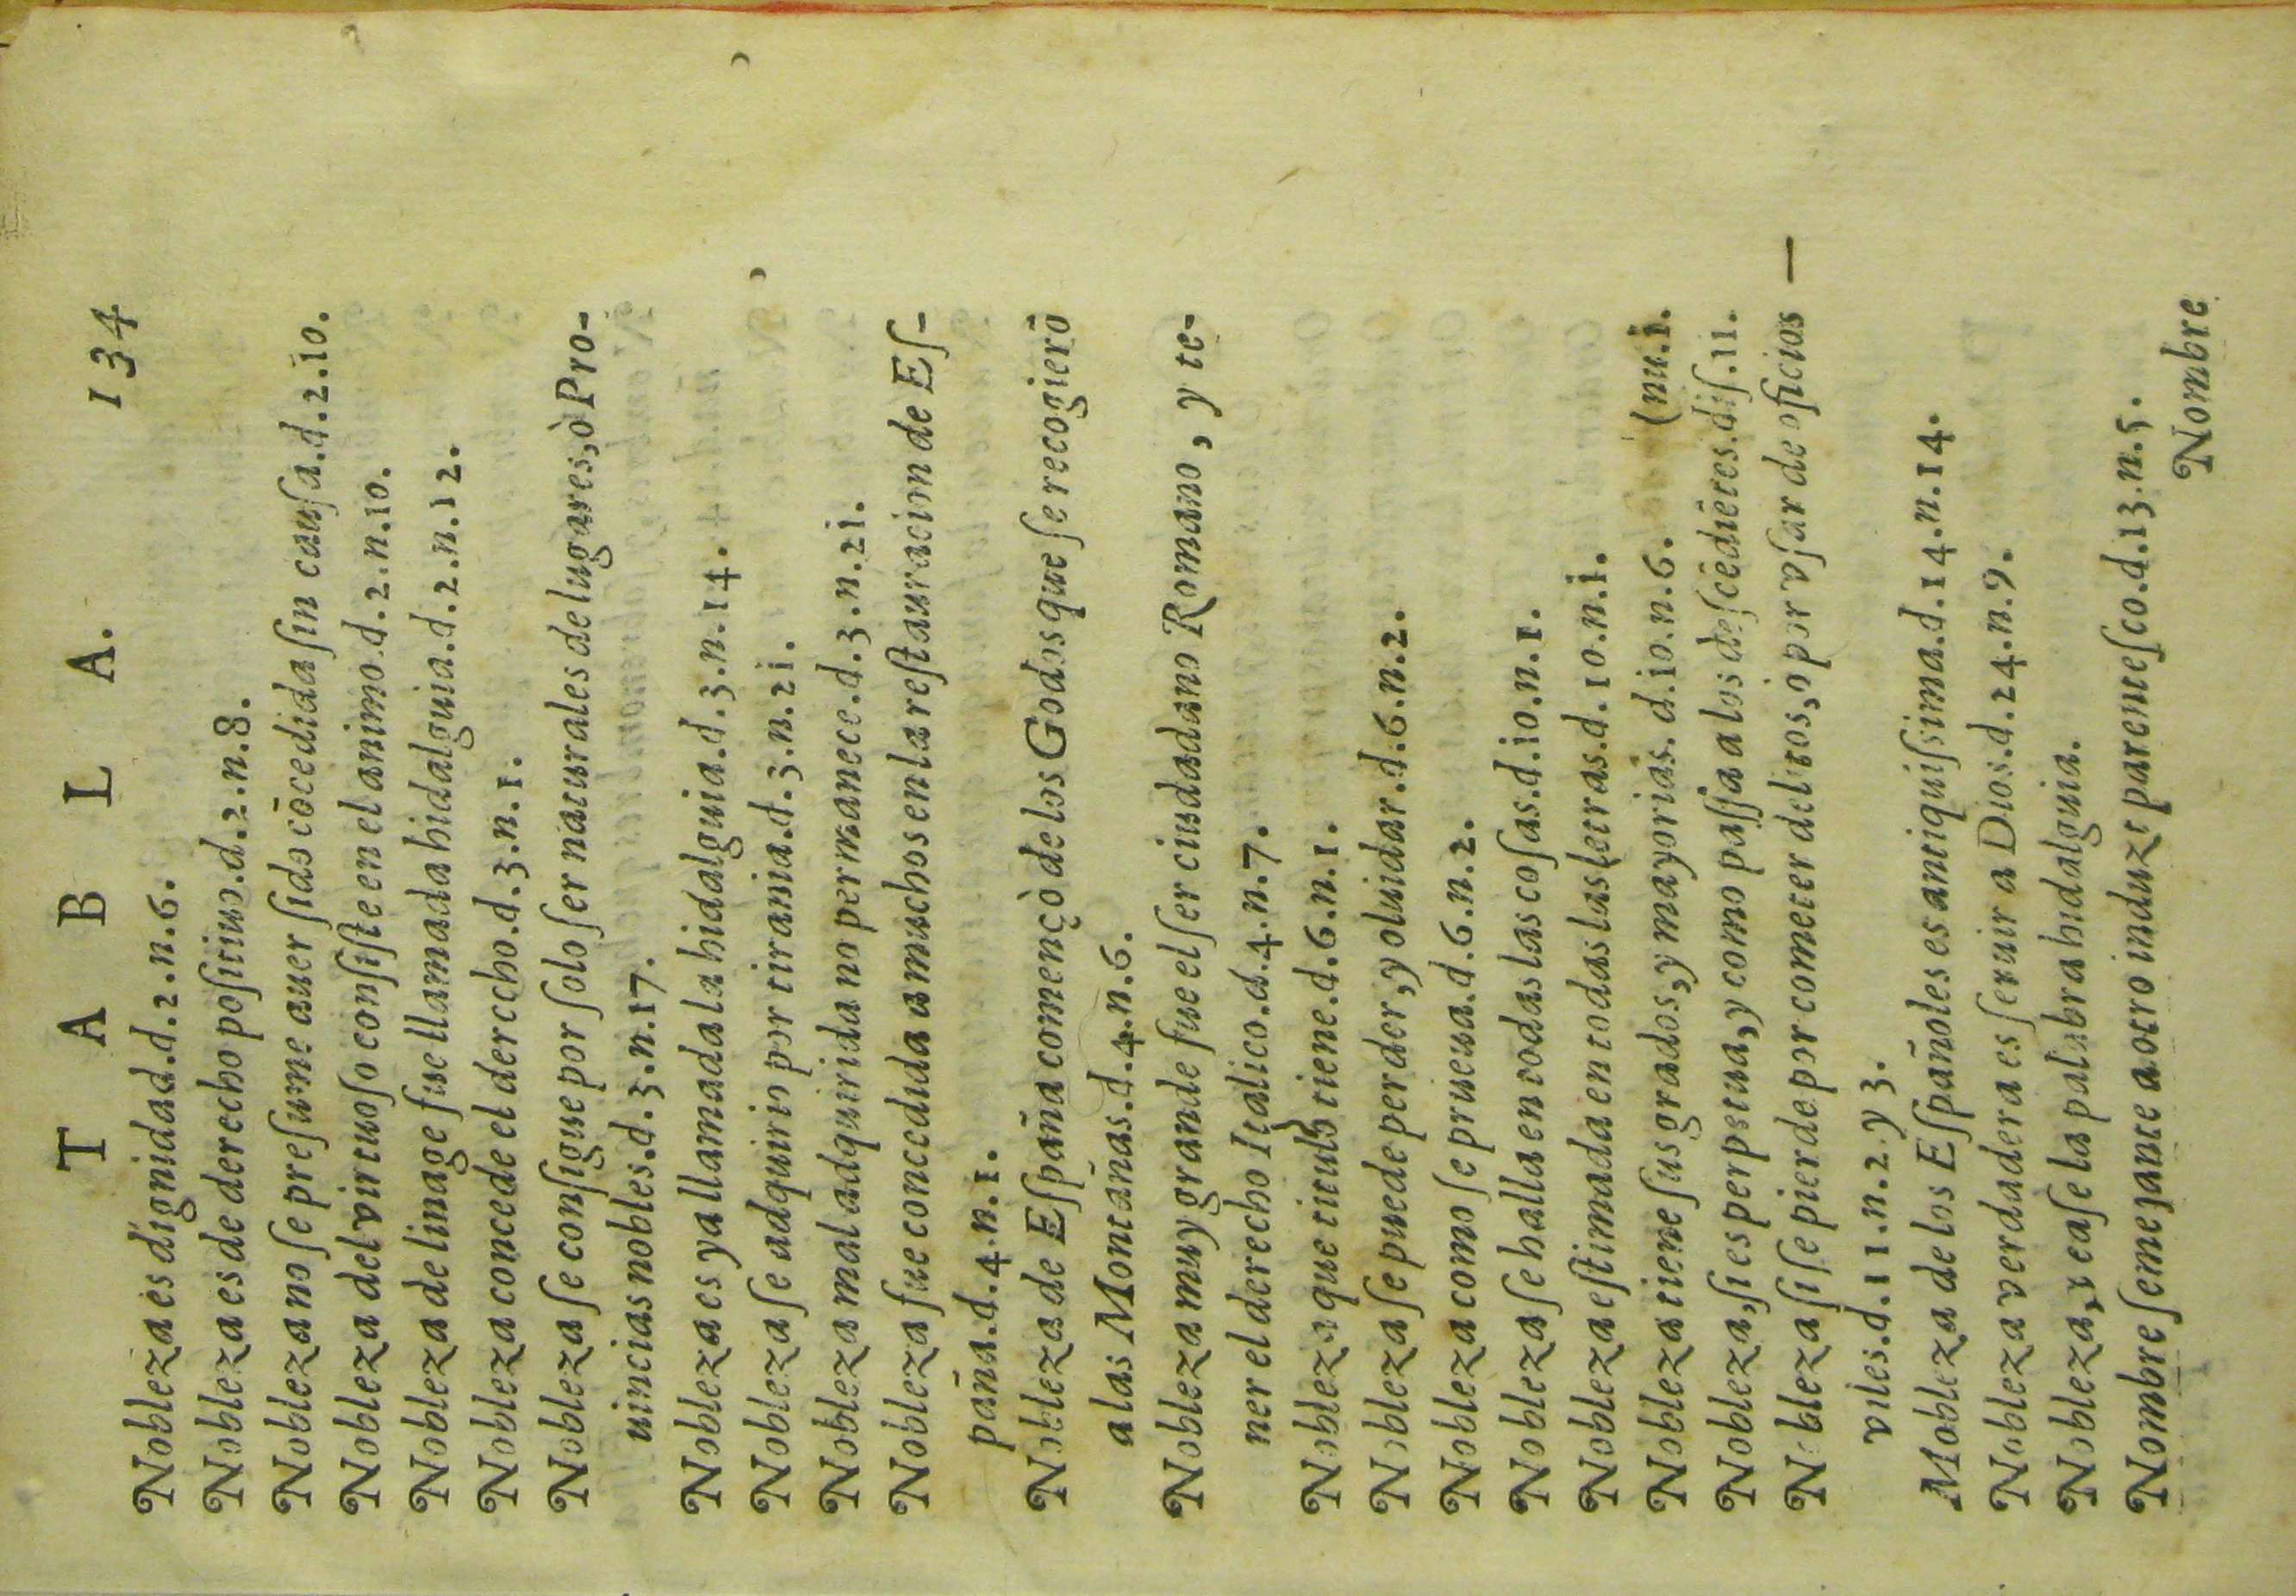 TABLA. 134
Nobleza es dignidad.d.2.n.6.
Nobleza es de derecho poſitiuo.d.2.n.8.
Nobleza no ſe preſume auer ſido cōcedida ſin cauſa.d.2.10.
Nobleza del virtuoſo conſiſte en el animo.d.2.n.10.
Nobleza de linage fue llamada hidalguia.d.2.n.12.
Nobleza concede el derecho.d.3.n.1.
Nobleza ſe conſigue por ſolo ſer naturales de lugares,ò Pro-
uincias nobles.d.3.n.17.
Nobleza es ya llamada la hidalguia.d.3.n.14.
Nobleza ſe adquirio por tirania.d.3.n.21.
Nobleza mal adquirida no permanece.d.3.n.21.
Nobleza fue concedida a muchos en la reſtauracion de Eſ-
paña.d.4.n.1.
Nobleza de Eſpaña començò de los Godos que ſe recogierō
a las Montañas.d.4.n.6.
Nobleza muy grande fue el ſer ciudadano Romano, y te-
ner el derecho Italico.d.4.n.7.
Nobleza que titulo tiene.d.6.n.1.
Nobleza ſe puede perder,y oluidar.d.6.n.2.
Nobleza como ſe prueua.d.6.n.2.
Nobleza ſe halla en todas las coſas.d.10.n.1.
Nobleza eſtimada en todas las letras.d.10.n.1.
Nobleza tiene ſus grados,y mayorias.d.10.n.6. (nu.1.
Nobleza,ſi es perpetua,y como paſſa a los deſcēdiētes.diſ.11.
Nobleza ſi ſe pierde por cometer delitos,o por vſar de oficios
viles.d.11.n.2.y 3.
Nobleza de los Eſpañoles es antiquiſsima.d.14.n.14.
Nobleza verdadera es ſeruir a Dios.d.24.n.9.
Nobleza,veaſe la palabra hidalguia.
Nombre ſemejante a otro induze parenteſco.d.13.n.5.
Nombre